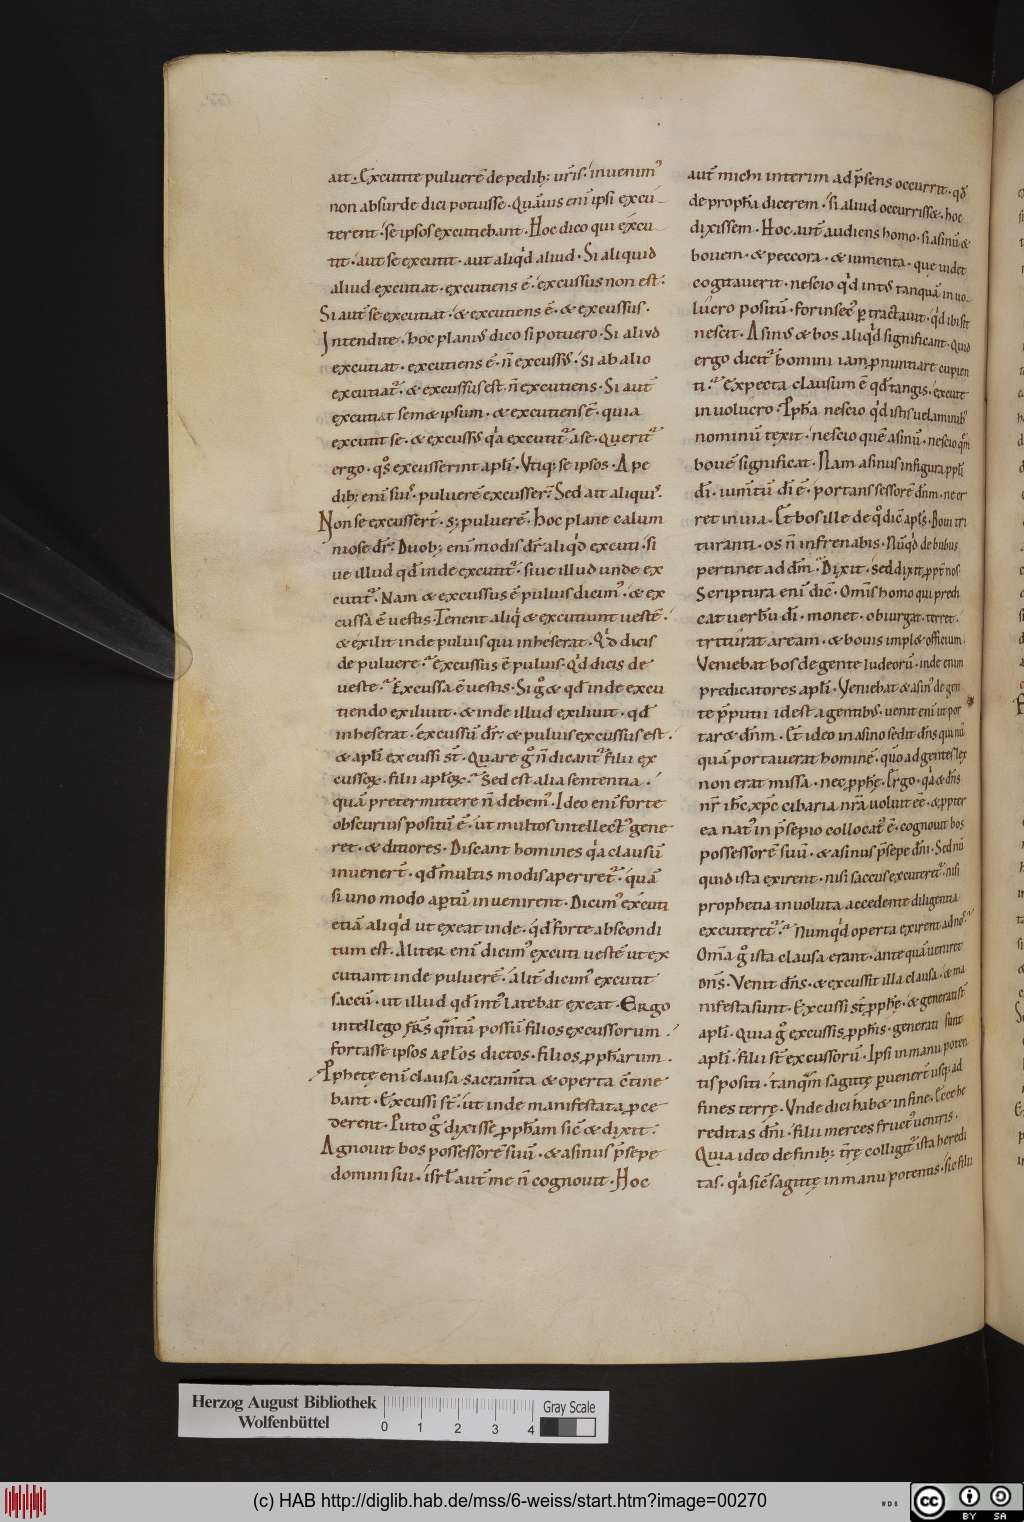 ait. Excutite puluerē de pedib; uris. inuenim᾽
non absurde dici potuisse. Quāuis eni ipsi excu
terent. se ipsos excutiebant. Hoc dico qui excu
tit. aut se excutit. aut aliqd aliud. Si aliquid
aliud excutiat. excutiens ē. excussus non est.
Si aut̄ se excutiat. & excutiens ē. & excussus.
Intendite. hoc plani᾽ dico si potuero. Si aliud
excutiat. excutiens ē. n̄ excuss᾽. Si ab alio
excutiat᾽. & excussus est n̄ excutiens. Si aut̄
excutiat sem&ipsum. & excutiens ē. quia
excutit se. & excuss᾽ qa excutit᾽ a se. Querit᾽
ergo. qs excusserint apli. Vtiq; se ipsos. A pe
dib; eni sui᾽. puluerē excusser̄. Sed ait aliqui᾽.
Non se excusser̄t. s; puluerē. hoc plane calum
niose dr̄. Duob; eni modis dr̄ aliqd excuti. si
ue illud qd inde excutit᾽. siue illud unde ex
cutit᾽. Nam & excussus ē puluis dicim᾽. & ex
cussa ē uestis. Tenent aliqi & excutiunt uestē.
& exilit inde puluis qui inheserat. Qd dicis
de puluere. Excussus ē puluis. Qd dicis de
ueste. Excussa ē uestis. Si go & qd inde excu
tiendo exiluit. & inde illud exiliuit. qd
inheserat. excussū dr̄. & puluis excussus est.
& apli excussi st̄. Quare go n̄ dicant᾽ filii ex
cussoꝝ. filii aploꝝ. Sed est alia sententia.
quā pretermittere n̄ debem᾽. Ideo eni forte
obscurius positū ē. ut multos intellect᾽ gene
ret. & ditiores. Discant homines qa clausū
inuener̄t. qd multis modis aperiret᾽. quā
si uno modo aptū inuenirent. Dicim᾽ excuti
etiā aliqd ut exeat inde. qd forte abscondi
tum est. Aliter eni dicim᾽ excuti uestē ut ex
cutiant inde puluerē. alit̄ dicim᾽ excutit
saccū. ut illud qd int᾽ latebat exeat. Ergo
intellego frs qm̄tū possū filios excussorum.
fortasse ipsos aplos dictos. filios ppharum.
Pphetę eni clausa sacram̄ta & operta c̄tine
bant. Excussi st̄. ut inde manifestata pce
derent. Puto go dixisse ppham sic & dixit.
Agnouit bos possessorē suū. & asinus psepe
domini sui. isrl aut̄ me n̄ cognouit. Hoc
aut̄ michi interim ad psens occurrit. qd
de propha dicerem. si aliud occurrisse. hoc
dixissem. Hoc aut̄ audiens homo. si asinū &
bouem. & peccora. & iumenta. que uidet
cogitauerit. nescio qd int᾽ tanquā in uo
lucro positū. forinsec᾽ ptractauit. qd ibi sit
nescit. Asin᾽ & bos aliqd significant. Quid
ergo dicit᾽ homini iam pnuntiare cupien
ti. Expecta clausum ē qd tangis. excute
inuolucro. Ppha nescio qd istis uelaminib᾽
nominū texit. nescio quē asinū. nescio qē
bouē significat. Nam asinus in figura ppli
di. iumtū di ē. portans sessorē dnm. ne er
ret in uia. Et bos ille de qo dic̄ apls. Boui tri
turanti. os n̄ infrenabis. Nūqd de bubus
pertinet ad dm̄. Dixit. sed dixit ppt̄ nos.
Scriptura eni dic̄. Omis homo qui predi
cat uerbū di. monet. obiurgat. terret.
triturat aream. & bouis impl& officium.
Veniebat bos de gente Iudeorū. inde enim
predicatores apli. Veniebat & asin᾽ de gen
te pputii id est a gentib᾽. uenit eni ut por
tar& dnm. Et ideo in asino sedit dns qui nū
quā portauerat hominē. quo ad gentes lex
non erat missa. nec pphę. Ergo. qa & dns
nr ihc xpc cibaria nra uoluit ēē. & ppter
ea nat᾽ in psepio collocat᾽ ē. cognouit bos
possessorē suū. & asinus psepe dni. Sed nū
quid ista exirent. nisi saccus excuteret᾽. nisi
prophetia inuoluta accedente diligentia
excuteret᾽. Numqd operta exirent ad no᾽.
Oma go ista clausa erant. ante quā ueniret
dns. Venit dns. & excussit illa clausa. & ma
nifesta sunt. Excussi st̄ pphę. & generati st̄
apli. Quia go excussis pphis. generati sunt
apli. filii st̄ excussorū. Ipsi in manu poten
tis positi. tanqm̄ sagittę puener̄t usq; ad
fines terrę. Vnde dici hab& in fine. Ecce he
reditas dni. filii merces fruct᾽ uentris.
Quia ideo de finib; tr̄ę colligit᾽ ista heredi
tas. qa sic sagittę in manu potentis. sic filii
Herzog August Bibliothek
Wolfenbüttel
0 1 2 3 4
Gray Scale
(c) HAB http://diglib.hab.de/mss/6-weiss/start.htm?image=00270
cc BY SA